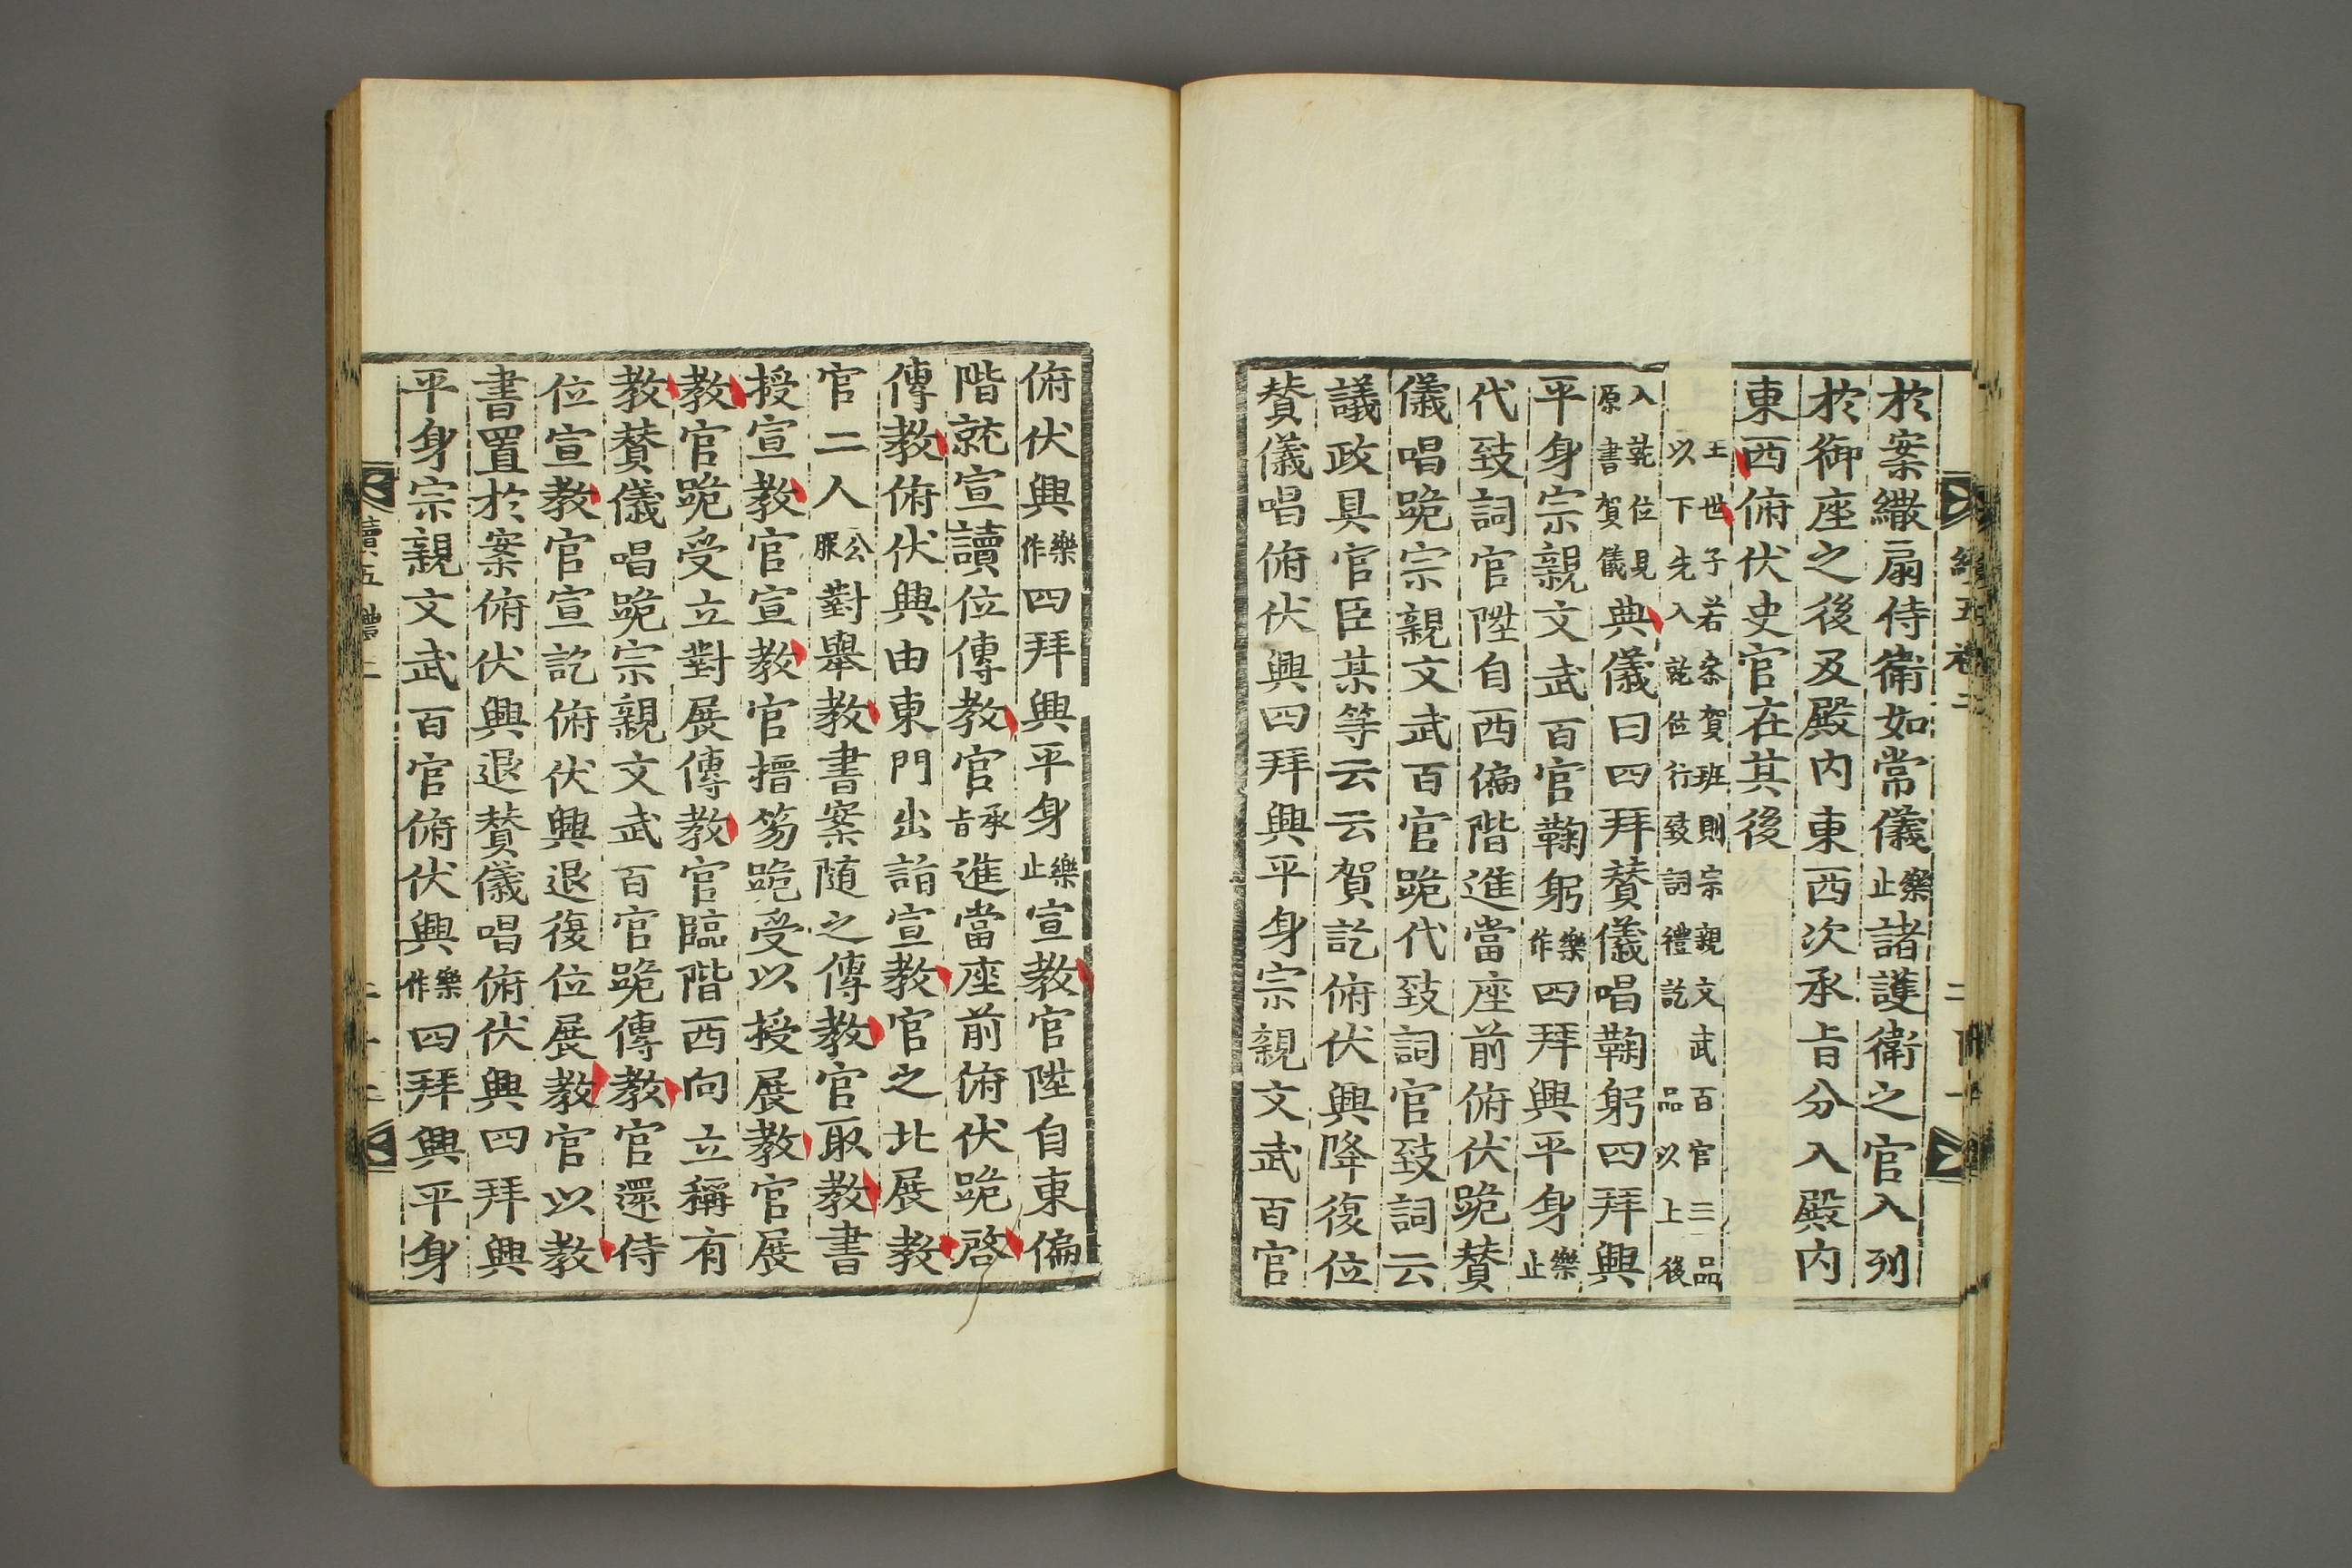 於案繖扇侍衛如常儀樂止諸護衛之官入列
於御座之後及殿內東西次承旨分入殿內
東西俯伏史官在其後
王世子若參賀班則宗親文武百官三品
以下先入就位行致詞禮訖品以上後
入就位見
原書賀儀典儀曰四拜贊儀唱鞠躬四拜興
平身宗親文武百官鞠躬樂作四拜興平身樂止
代致詞官陞自西偏階進當座前俯伏跪贊
儀唱跪宗親文武百官跪代致詞官致詞云
議政具官臣某等云云賀訖俯伏興降復位
贊儀唱俯伏興四拜興平身宗親文武百官
俯伏興樂作四拜興平身樂止宣教官陞自東偏
階就宣讀位傳教官承旨進當座前俯伏跪啓
傳教俯伏興由東門出詣宣教官之北展教
官二人公服對舉教書案隨之傳教官取教書
授宣教官宣教官搢笏跪受以授展教官展
教官跪受立對展傳教官臨階西向立稱有
教贊儀唱跪宗親文武百官跪傳教官還侍
位宣教官宣訖俯伏興退復位展教官以教
書置於案俯伏興退贊儀唱俯伏興四拜興
平身宗親文武百官俯伏興樂作四拜興平身